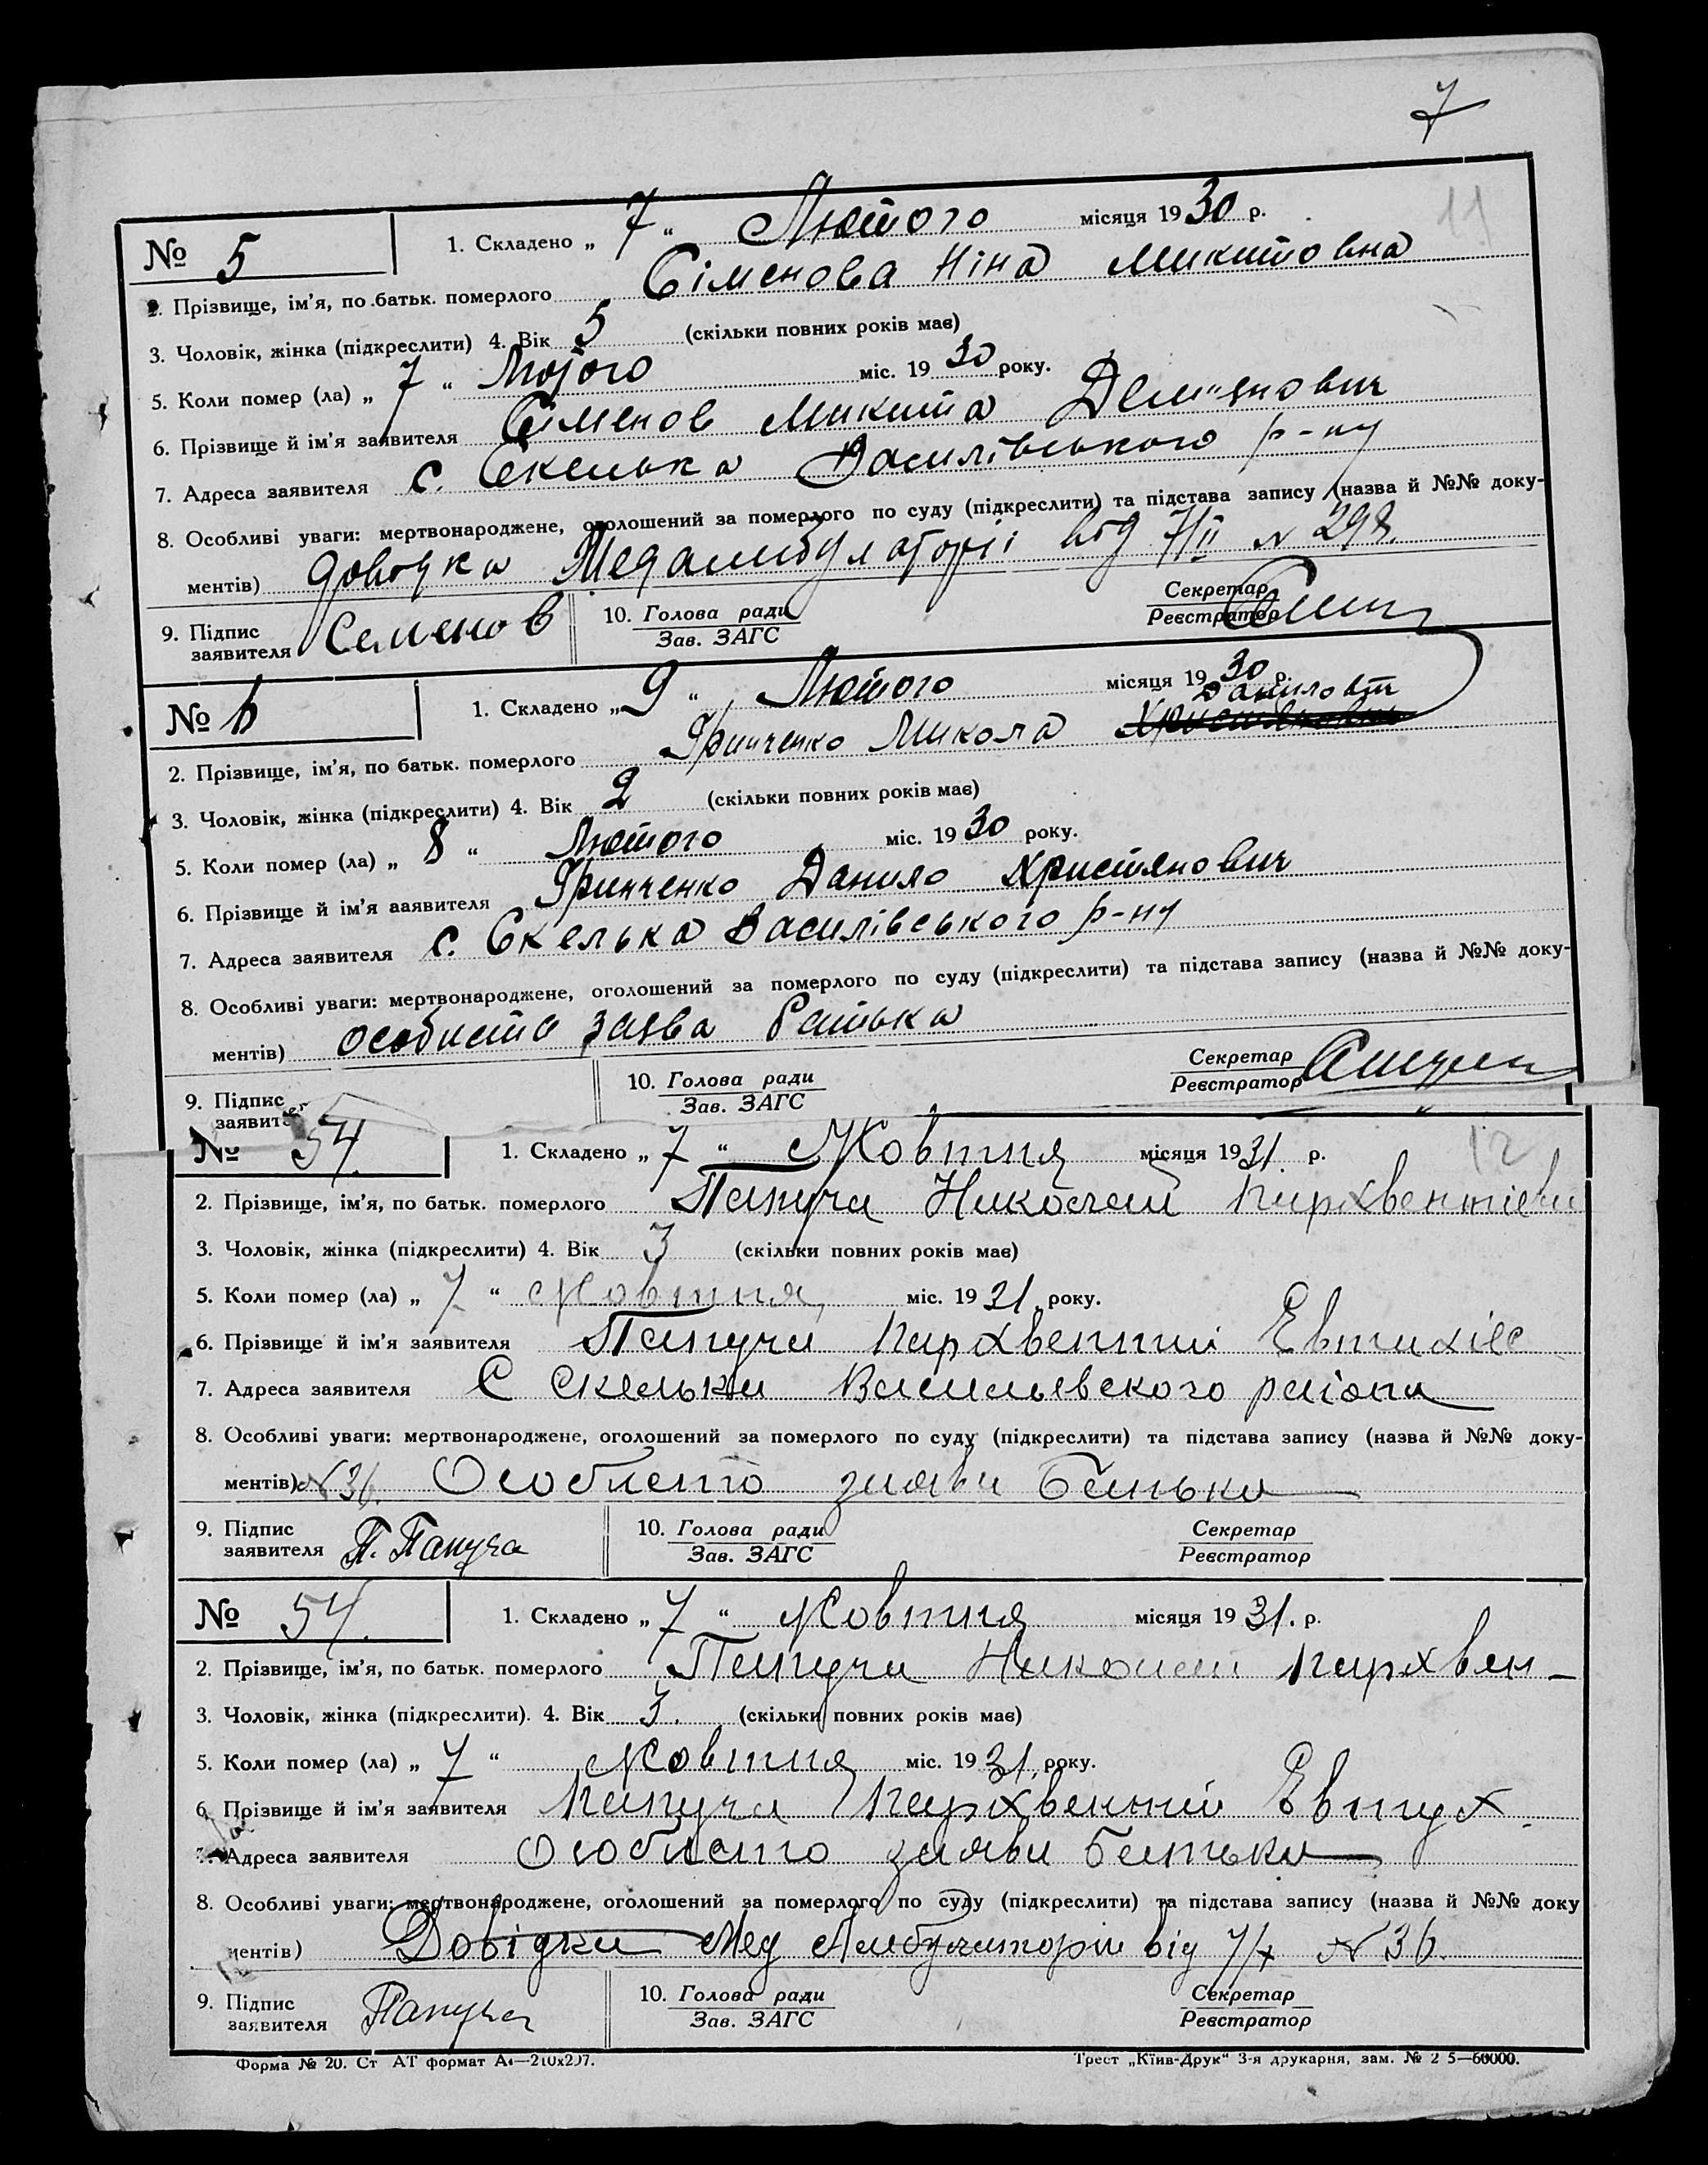 7
11
№ 5 1. Складено „ 7 “ Лютого місяця 1930 р.
2. Прізвище, ім'я, по батьк. померлого Сіменова Ніна Микитовна
3. Чоловік, жінка (підкреслити) 4. Вік 5 (скільки повних років має)
5. Коли помер (ла) „ 7 “ Лютого міс. 1930 року.
6. Прізвище й ім'я заявителя Сіменов Микита Дем"янович
7. Адреса заявителя с. Скелька Василівського р-ну
8. Особливі уваги: мертвонароджене, оголошений за померлого по суду (підкреслити) та підстава запису (назва й №№ доку-
ментів) довідка Медамбулаторії від 7/II № 298.
9. Підпис заявителя Семенов 10. Голова ради Зав. ЗАГС Секретар Реєстратор
№ 6 1. Складено „ 9 “ Лютого місяця 1930 р.
Данилович
2. Прізвище, ім'я, по батьк. померлого Гринченко Микола Христянович
3. Чоловік, жінка (підкреслити) 4. Вік 2 (скільки повних років має)
5. Коли помер (ла) „ 8 “ Лютого міс. 1930 року.
6. Прізвище й ім'я заявителя Гринченко Данило Христянович
7. Адреса заявителя с. Скелька Василівського р-ну
8. Особливі уваги: мертвонароджене, оголошений за померлого по суду (підкреслити) та підстава запису (назва й №№ доку-
ментів) особиста заява батька
9. Підпис заявителя 10. Голова ради Зав. ЗАГС Секретар Реєстратор
12
№ 54. 1. Складено „ 7 “ Жовтня місяця 1931. р.
2. Прізвище, ім'я, по батьк. померлого Папуча Николай Пархвентіеви
3. Чоловік, жінка (підкреслити) 4. Вік 3 (скільки повних років має)
5. Коли помер (ла) „ 7 “ Жовтня міс. 1931. року.
6. Прізвище й ім'я заявителя Папуча Пархвентий Евтихіев
7. Адреса заявителя С Скельки Васильевского раіона
8. Особливі уваги: мертвонароджене, оголошений за померлого по суду (підкреслити) та підстава запису (назва й №№ доку-
ментів) №36. Особисто заява батька
9. Підпис заявителя П. Папуча 10. Голова ради Зав. ЗАГС Секретар Реєстратор
№ 54. 1. Складено „ 7 “ Жовтня місяця 1931. р.
2. Прізвище, ім'я, по батьк. померлого Папуча Николай Пархвен-
3. Чоловік, жінка (підкреслити). 4. Вік 3. (скільки повних років має)
5. Коли помер (ла) „ 7 “ Жовтня міс. 1931, року.
6. Прізвище й ім'я заявителя Папуча Пархвентий Евтух.
7. Адреса заявителя Особисто заява батька
8. Особливі уваги: мертвонароджене, оголошений за померлого по суду (підкреслити) та підстава запису (назва й №№ доку
ментів) Довідка Мед Амбулаторіи від 7/X №36.
9. Підпис заявителя Папуча 10. Голова ради Зав. ЗАГС Секретар Реєстратор
Форма № 20. Ст АТ формат А4—210х297. Трест „Київ-Друк“ 3-я друкарня, зам. № 2 5—60000.